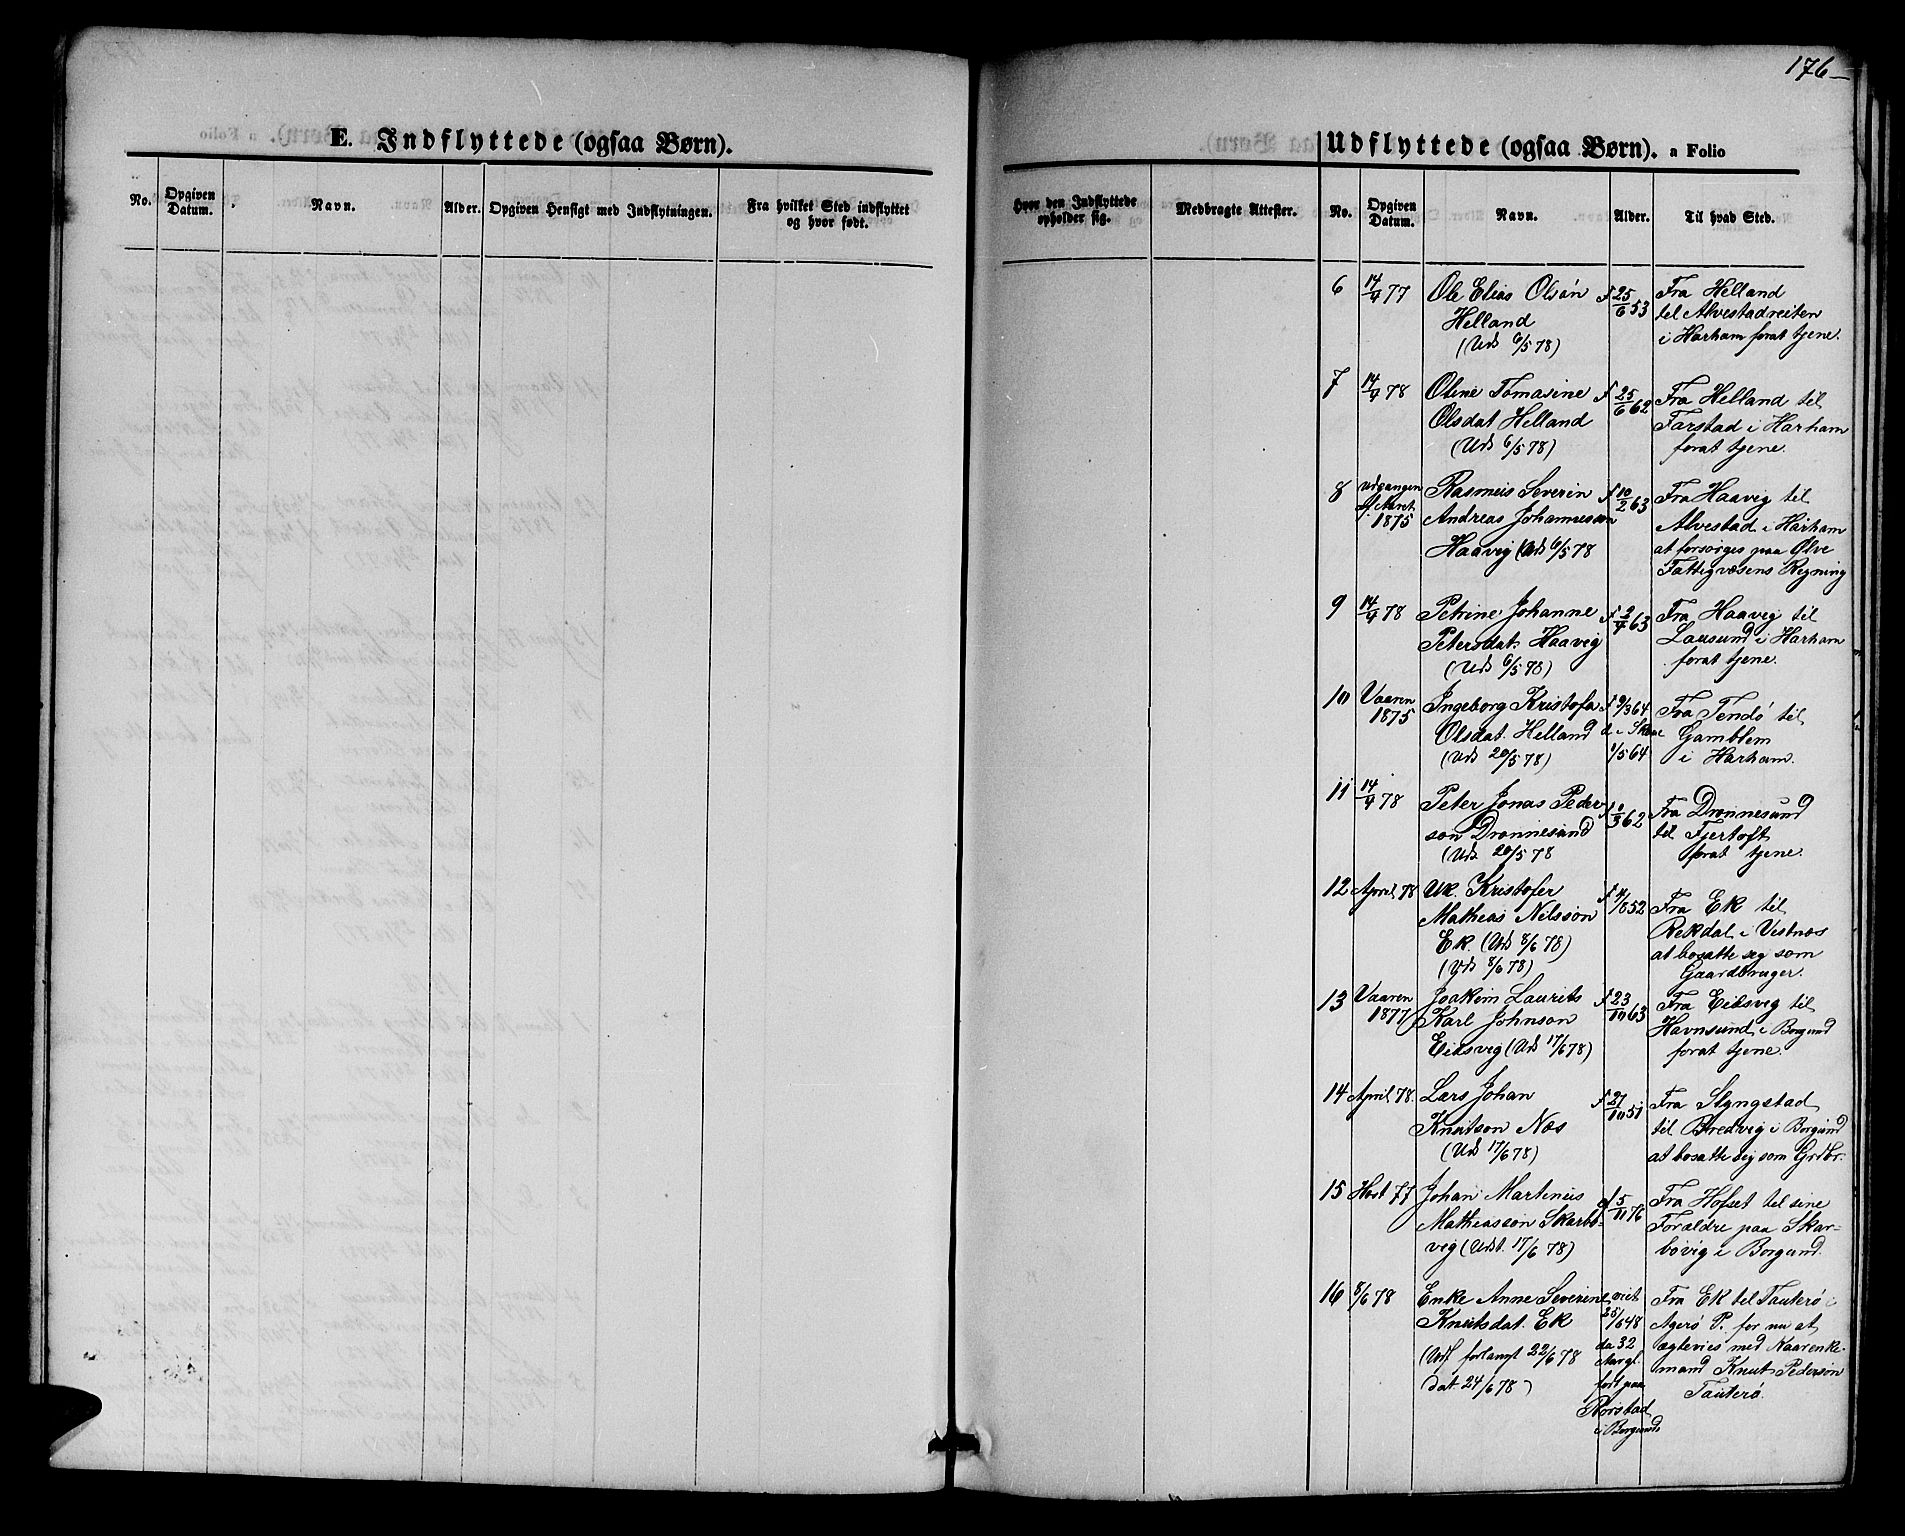 176
E. Indflyttede (ogsaa Børn).
No. Opgiven Datum. Navn. Alder. Opgiven Hensigt med Indflytningen. Fra hvilket Sted indflyttet og hvor født.
Udflyttede (ogsaa Børn). a Folio
Hvor den Indflyttede opholder sig. Medbragte Attester. No. Opgiven Datum. Navn. Alder. Til hvad Sted.
6 14/4 77 Ole Elias Olsøn f 25/6 53 Fra Helland
Helland til Alvestadreiten
(Uds 6/5 78) i Harham forat tjene.
7 14/4 78 Oline Tomasine f 25/6 62 Fra Helland til
Olsdat Helland Farstad i Harham
(Uds 6/5 78) forat tjene.
8 Udgangen Rasmus Severin f 10/2 63 Fra Haavig til
af Aaret Andreas Johannessøn Alvestad i Harham
1875 Haavig (Uds 6/5 78 at forsørges paa Ølve
Fattigvæsens Regning
9 14/4 78 Petrine Johanne f 2/4 63 Fra Haavig til
Petersdat. Haavig Lausund i Harham
(Uds 6/5 78) forat tjene.
10 Vaaren Ingeborg Kristofa f 9/3 64 Fra Tendø til
1875 Olsdat. Helland d. i Skoue Gamblem
(Uds 20/5 78) 1/5 64 i Harham.
11 14/4 78 Peter Jonas Peder- Fra Drønnesund
søn Drønnesund 62 til Fjertoft
(Uds 20/5 78 forat tjene.
12 April 78 Uk. Kristofer f 4/8 52 Fra Ek til
Mathias Nilssøn Rekdal i Vestnæs
Ek. (Uds 8/6 78) at bosatte seg som
(Uds 8/6 78) Gaardbruger.
13 Vaaren Joakim Laurits f 23/10 63 Fra Eidsvig til
1877 Karl Johnsøn Havnsund i Borgund
Eidsvig (Uds 17/6 78) forat tjene.
14 April 78. Lars Johan f 21/10 51 Fra Slyngstad
Knutsøn Næs til Bredvig i Borgund
(Uds 17/6 78) at bosatte sig som Grdbr.
15 Høst 77 Johan Martinus f 5/11 76 Fra Hofset til sine
Mathiassøn Skarbø- Forældre paa Skar-
vig (Udst. 17/6 78) bøvig i Borgund.
16 8/6 78 Enke Anne Severine viet Fra Ek til Tauterø i
Knutsdat. Ek 25/6 48 Agerø P. for nu at
(Udf forlangt 22/6 78 da 32 ægtevies med Kaarenke-
dat. 24/6 78) Aar gl. mand Knut Pedersøn
født paa Tauterø.
Rørstad
i Borgund